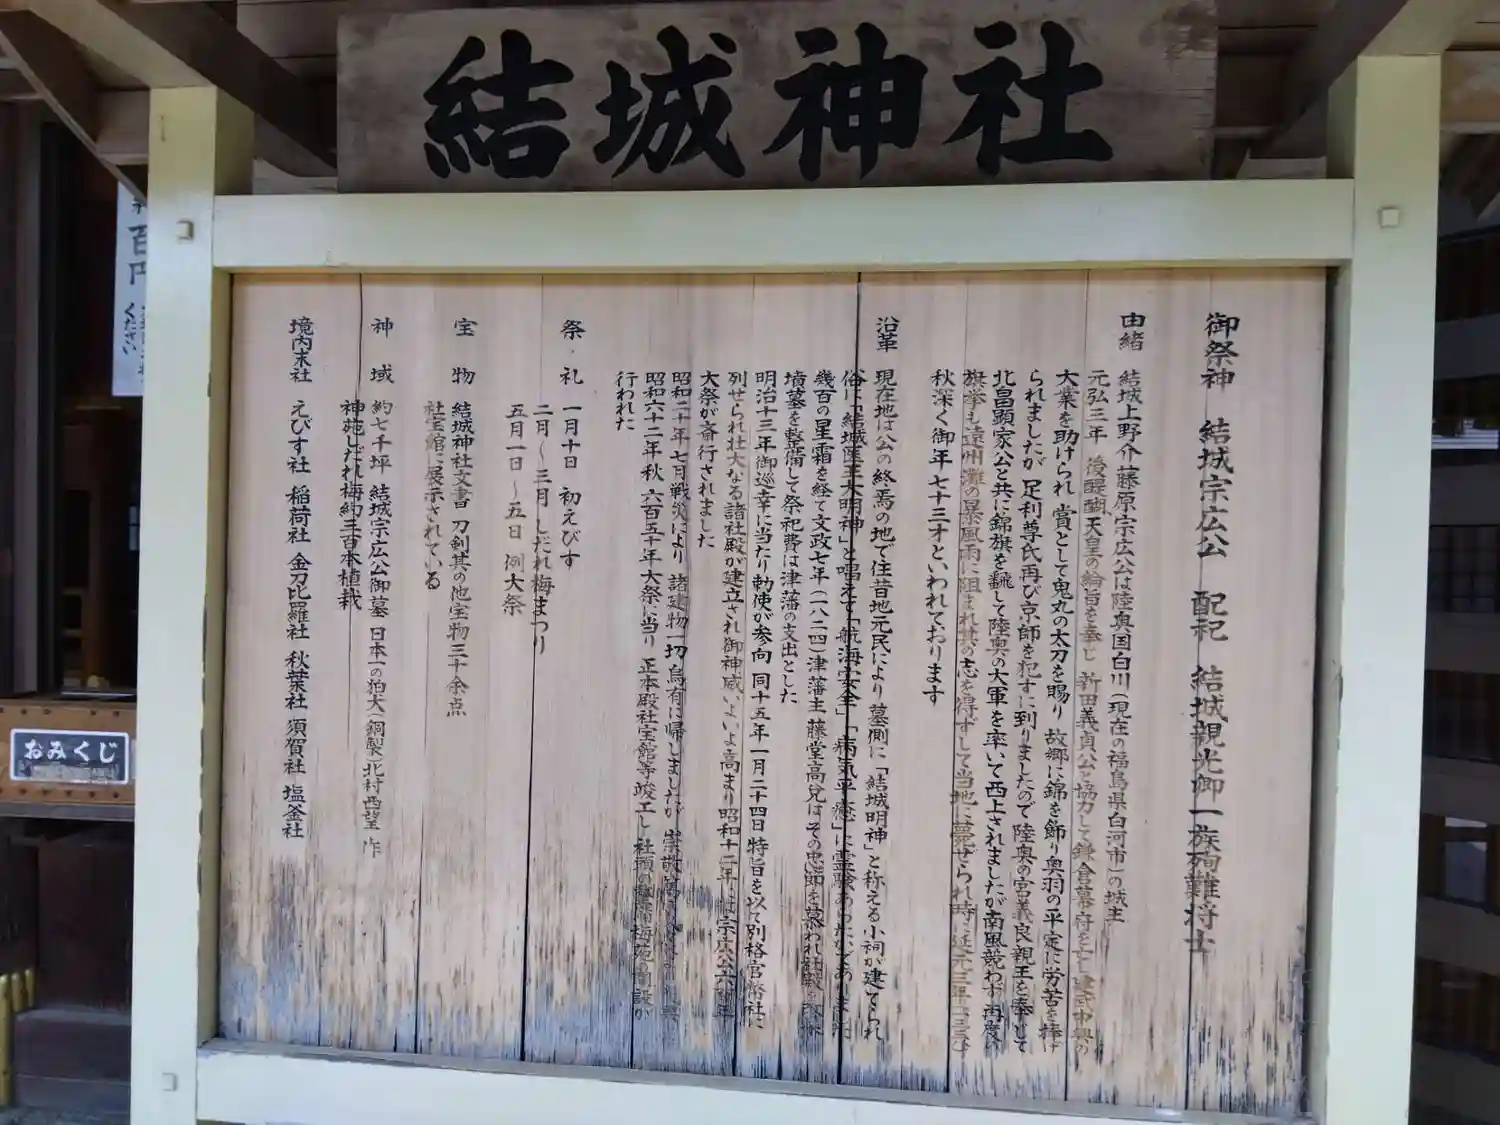 結城神社
御祭神 結城宗広公 配祀 結城親光卿 一族殉難将士
由緒 結城上野介藤原宗広公は陸奥国白川(現在の福島県白河市)の城主
元弘三年 後醍醐天皇の綸旨を奉じ 新田義貞公と協力して鎌倉幕府を亡し建武中興の
大業を助けられ 賞として鬼丸の太刀を賜り 故郷に錦を飾り奥羽の平定に労苦を捧げ
られましたが 足利尊氏再び京師を犯すに到りましたので 陸奥の宮義良親王を奉じて
北畠顕家公と共に錦旗を飜して陸奥の大軍を率いて西上されましたが南風競わず 再度の
旗挙も遠州灘の暴風雨に阻まれ其の志を得ずして当地に薨せられ時に延元三年
秋深く御年七十三才といわれております
沿革 現在地は公の終焉の地で往昔地元民により墓側に「結城明神」と称える小祠が建てられ
俗に「結城医王大明神」と唱えて「航海安全」「病気平癒」に霊験あらたかであります
幾百の星霜を経て文政七年(一八二四)津藩主 藤堂高兌はその忠節を慕われ社殿を
墳墓を整備して祭祀費は津藩の支出とした
明治十三年御巡幸に当たり勅使が参向 同十五年一月二十四日 特旨を以て別格官幣社に
列せられ壮大なる諸社殿が建立され御神威いよいよ高まり昭和十二年 宗広公六百年
大祭が斎行されました
昭和二十年七月戦災により 諸建物一切烏有に帰しましたが 崇敬
昭和六十二年秋 六百五十年大祭に当り 正本殿社宝館等竣工し 社頭の 梅苑の開設が
行われた
祭・礼 一月十日 初えびす
二月〜三月 しだれ梅まつり
五月一日〜五日 例大祭
宝物 結城神社文書 刀剣其の他宝物三十余点
社宝館に展示されている
神域 約七千坪 結城宗広公御墓 日本一の狛犬(銅製)北村西望 作
神苑しだれ梅約三百本植栽
境内末社 えびす社 稲荷社 金刀比羅社 秋葉社 須賀社 塩釜社
百円
ください
おみくじ